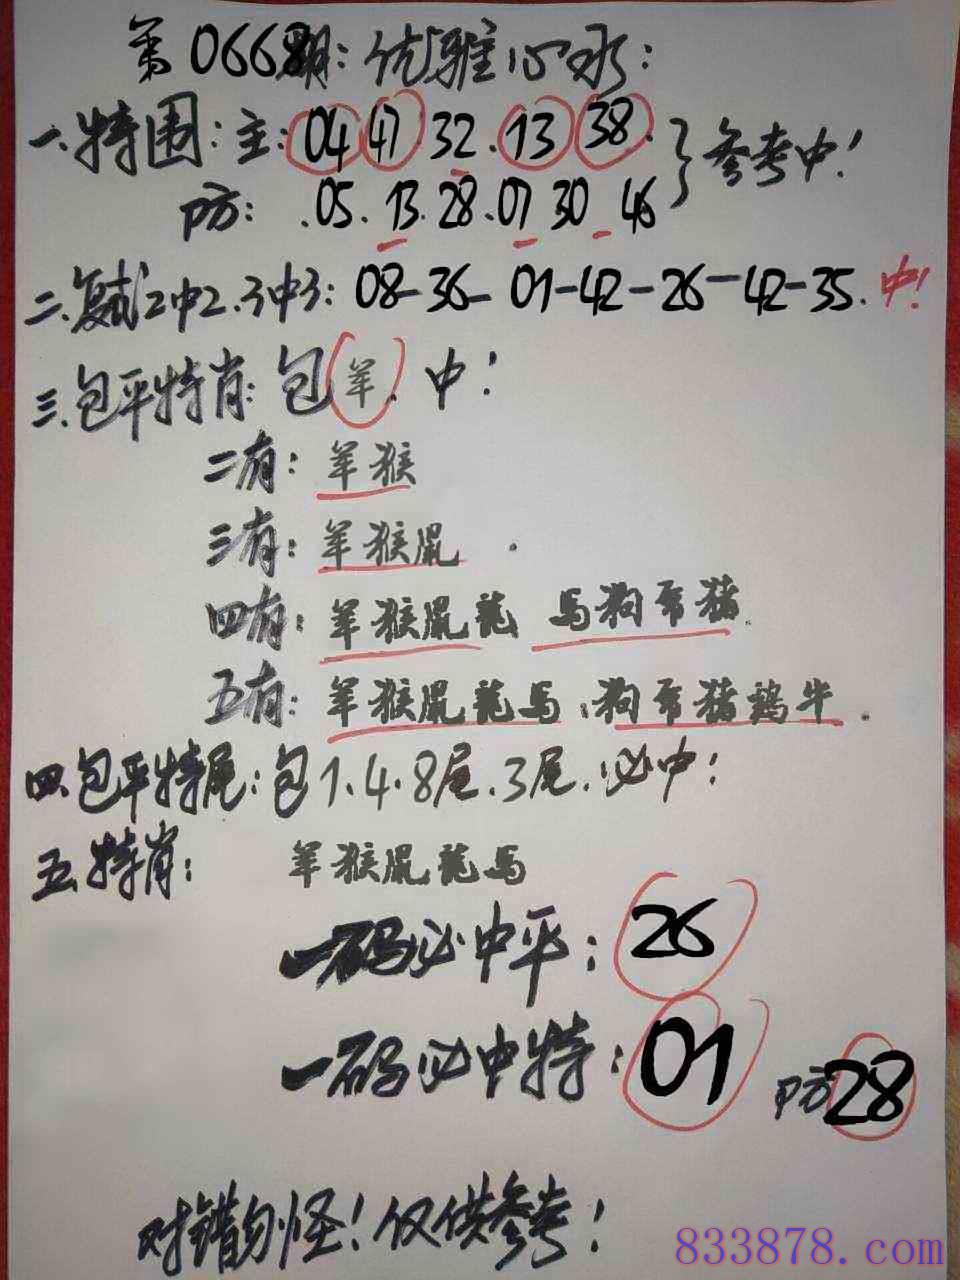 第0668期：优雅心水：
一、特围：主：04 47 32．13 38．
防：．05．13．28．07 30 46
}参考中！
二、复试2中2．3中3：08-36-01-42-26-42-35．中！
三、包平特肖：包羊．中！
二有：羊猴
三有：羊猴鼠．
四有：羊猴鼠龍 馬狗兎猪．
五有：羊猴鼠龍馬．狗兎猪鷄牛．
四．包平特尾：包1．4．8尾．3尾．必中！
五、特肖：羊猴鼠龍馬
一码必中平：26
一码必中特：01 防28
对错勿怪！仅供参考！
833878.com